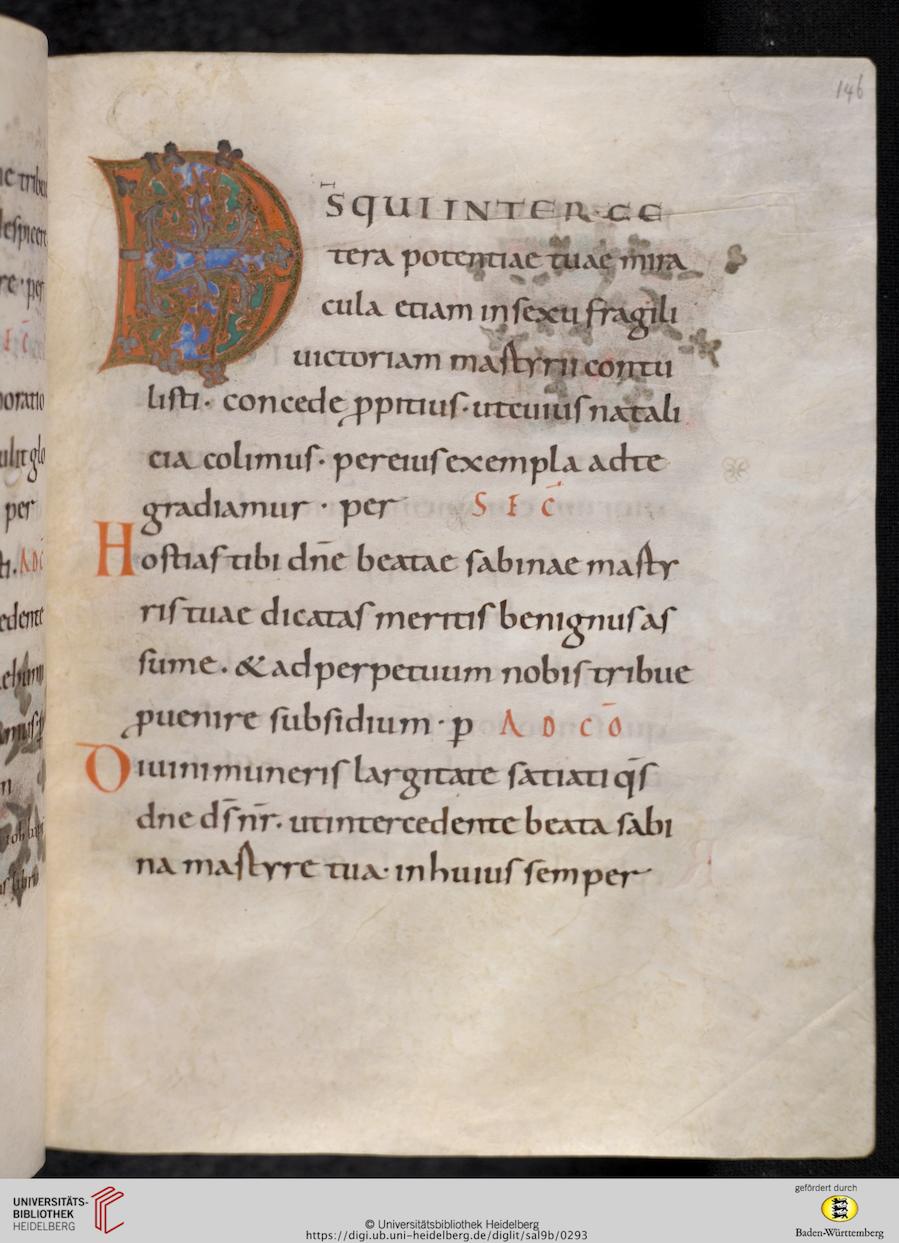 146
D S̄ QUI INTER·CE
tera potentiae tuae mira
cula etiam in sexu fragili
uictoriam martyrii contu
listi· concede ꝓpitius· ut cuius natali
cia colimus· per eius exempla ad te
gradiamur · per S E C̄
Hostias tibi dn̄e beatae sabinae marty
ris tuae dicatas meritis benignus as
sume. & ad perpetuum nobis tribue
ꝓuenire subsidium· ꝑ A D C̄O
Diuini muneris largitate satiati q̄s
dne ds̄ nr̄· ut intercedente beata sabi
na martyre tua· in huius semper
UNIVERSITÄTS-
BIBLIOTHEK
HEIDELBERG
© Universitätsbibliothek Heidelberg
https://digi.ub.uni-heidelberg.de/diglit/sal9b/0293
gefördert durch
Baden-Württemberg